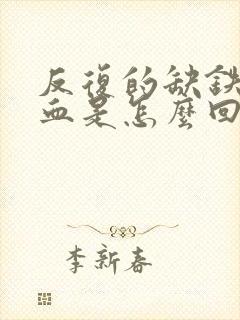 反復的缺鐵
血是怎麼回
李新春